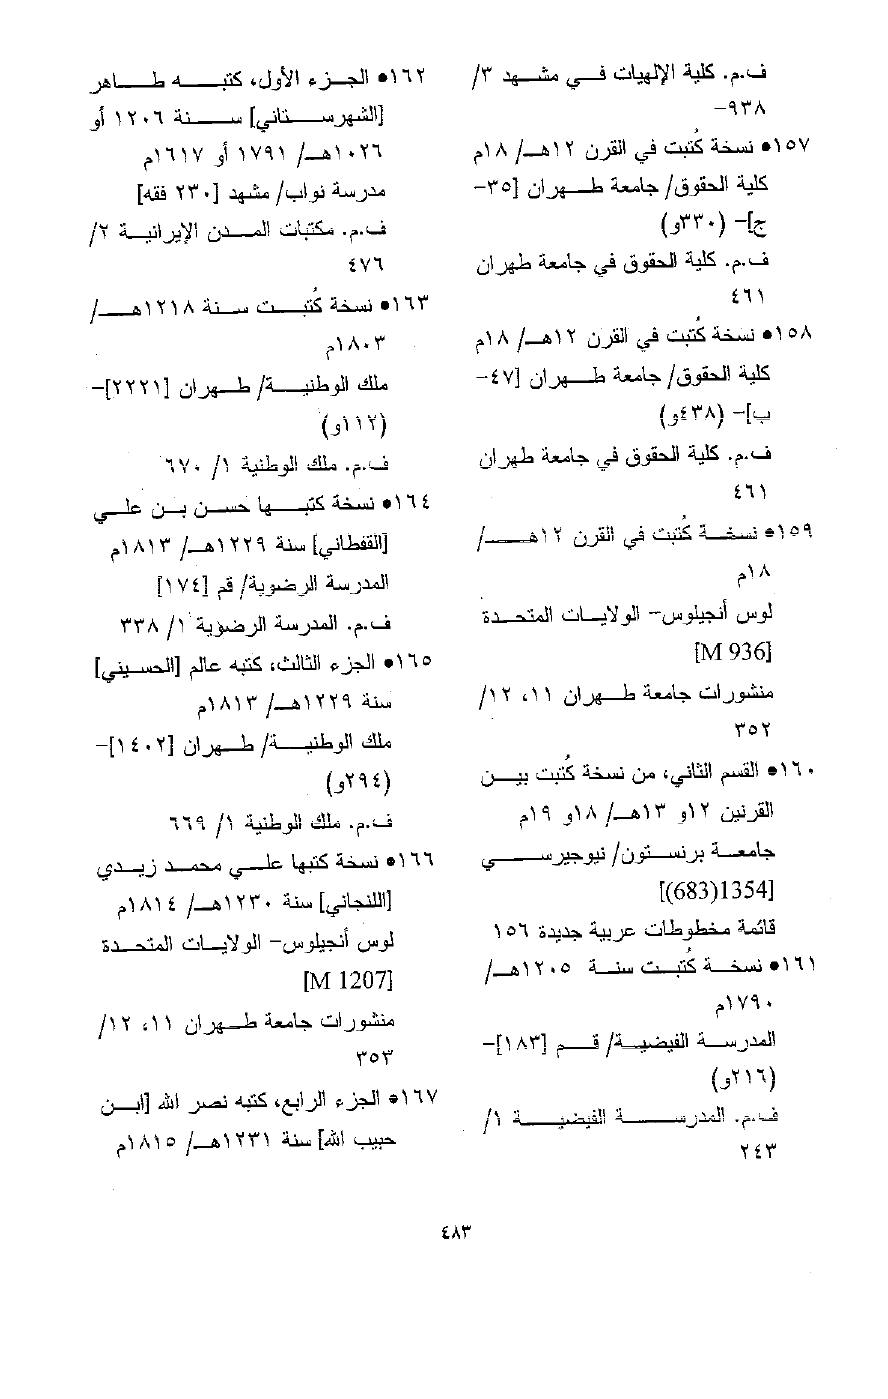 ف.م. كلية الإلهيات في مشهد ٣/
٩٣٨-
١٥٧• نسخة كُتبت في القرن ١٢هـ/ ١٨م
كلية الحقوق/ جامعة طهران [٣٥-
ج]- (٣٣٠و)
ف.م. كلية الحقوق في جامعة طهران
٤٦١
١٥٨• نسخة كُتبت في القرن ١٢هـ/ ١٨م
كلية الحقوق/ جامعة طهران [٤٧-
ب]- (٤٣٨و)
ف.م. كلية الحقوق في جامعة طهران
٤٦١
١٥٩• نسخة كُتبت في القرن ١٢هـ/
١٨م
لوس أنجيلوس- الولايات المتحدة
[M 936]
منشورات جامعة طهران ١١، ١٢/
٣٥٢
١٦٠• القسم الثاني، من نسخة كُتبت بين
القرنين ١٢و ١٣هـ/ ١٨و ١٩م
جامعة برنستون/ نيوجيرسي
[1354(683)]
قائمة مخطوطات عربية جديدة ١٥٦
١٦١• نسخة كُتبت سنة ١٢٠٥هـ/
١٧٩٠م
المدرسة الفيضية/ قم [١٨٣]-
(٢١٦و)
ف.م. المدرسة الفيضية ١/
٢٤٣
١٦٢• الجزء الأول، كتبه طاهر
[الشهرستاني] سنة ١٢٠٦ أو
١٠٢٦هـ/ ١٧٩١ أو ١٦١٧م
مدرسة نواب/ مشهد [٢٣٠ فقه]
ف.م. مكتبات المدن الإيرانية ٢/
٤٧٦
١٦٣• نسخة كُتبت سنة ١٢١٨هـ/
١٨٠٣م
ملك الوطنية/ طهران [٢٢٢١]-
(١١٢و)
ف.م. ملك الوطنية ١/ ٦٧٠
١٦٤• نسخة كتبها حسن بن علي
[القفطاني] سنة ١٢٢٩هـ/ ١٨١٣م
المدرسة الرضوية/ قم [١٧٤]
ف.م. المدرسة الرضوية ١/ ٣٣٨
١٦٥• الجزء الثالث، كتبه عالم [الحسيني]
سنة ١٢٢٩هـ/ ١٨١٣م
ملك الوطنية/ طهران [١٤٠٢]-
(٢٩٤و)
ف.م. ملك الوطنية ١/ ٦٦٩
١٦٦• نسخة كتبها علي محمد زيدي
[اللنجاني] سنة ١٢٣٠هـ/ ١٨١٤م
لوس أنجيلوس- الولايات المتحدة
[M 1207]
منشورات جامعة طهران ١١، ١٢/
٣٥٣
١٦٧• الجزء الرابع، كتبه نصر الله [ابن
حبيب الله] سنة ١٢٣١هـ/ ١٨١٥م
٤٨٣